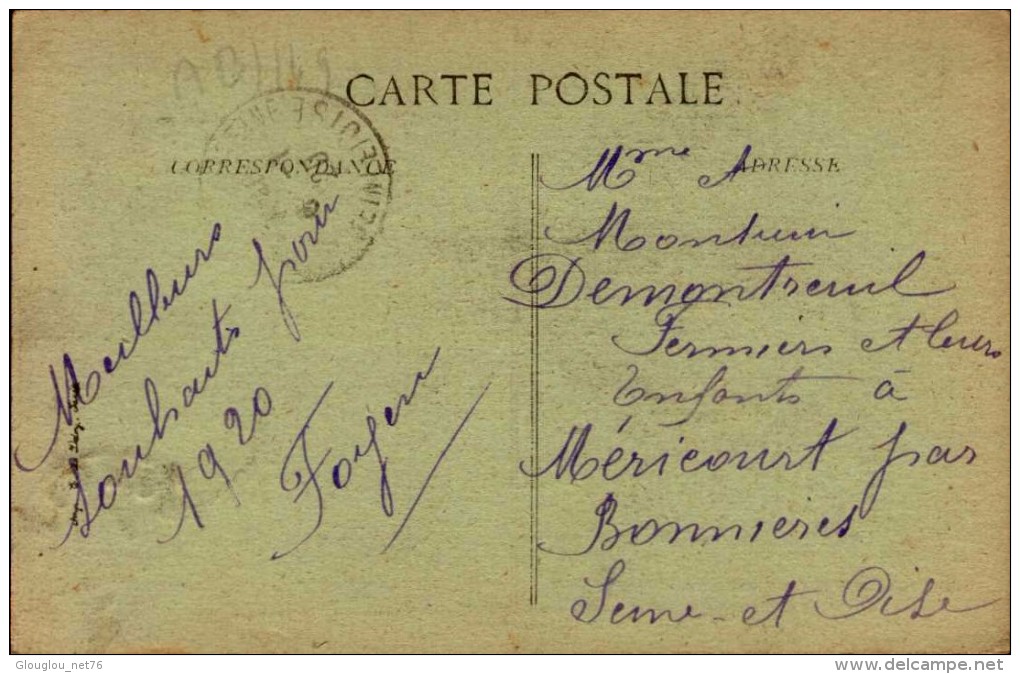 CARTE POSTALE
CORRESPONDANCE
ADRESSE
Meilleurs
souhaits pour
1920
Mme A
Demontreuil
Fermiers et leurs
Enfants à
Méricourt par
Bonnieres
Seine-et Oise
Glouglou_net76
www.delcampe.net